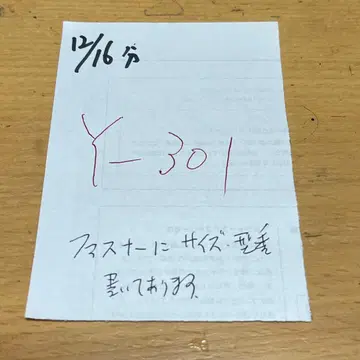 12/16分
Y-301
ファスナーに サイズ・型番
書いております。